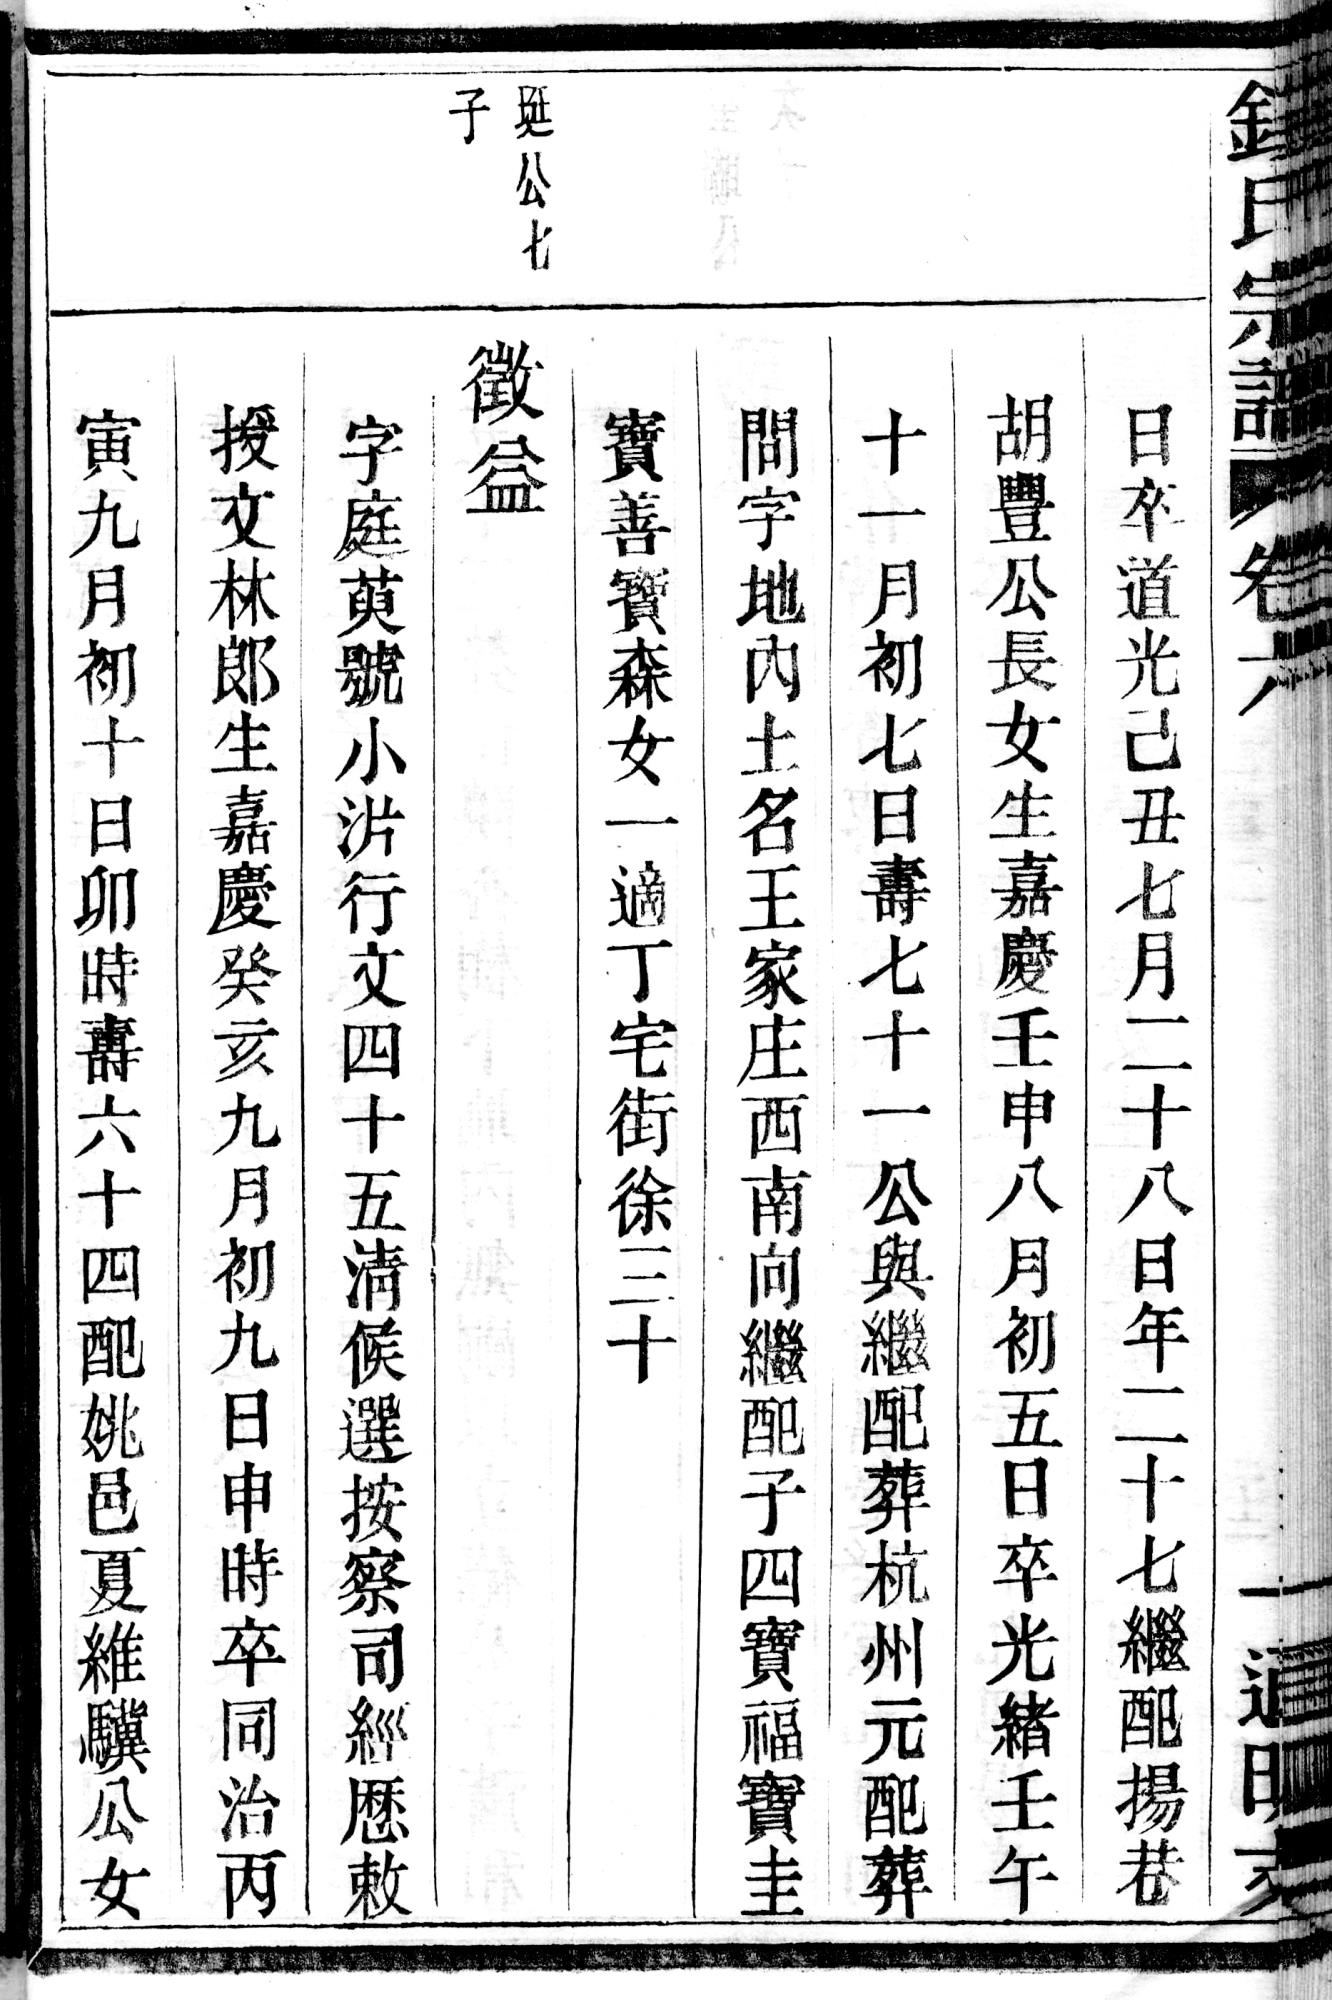 鍾氏宗譜 卷六 一 通明支
日卒道光己丑七月二十八日年二十七繼配揚巷
胡豐公長女生嘉慶壬申八月初五日卒光緒壬午
十一月初七日壽七十一公與繼配葬杭州元配葬
問字地內土名王家庄西南向繼配子四寶福寶圭
寶善寶森女一適丁宅街徐三十
珽公七
子
徵益
字庭萸號小汸行文四十五清候選按察司經歷敕
授文林郎生嘉慶癸亥九月初九日申時卒同治丙
寅九月初十日卯時壽六十四配姚邑夏維驥公女